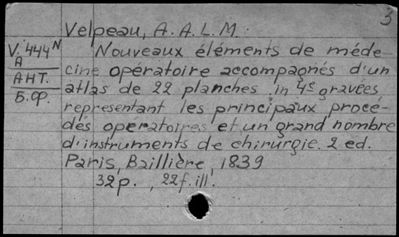 3
Velpeau, A. A. L. M.
V. 444 N
A
AHT.
Б.ср.
Nouveaux éléments de méde-
cine opératoire accompagnés d'un
atlas de 22 planches in 4º gravées
representant les principaux proce-
dés operatoires et un grand nombre
d'instruments de chirurgie. 2 ed.
Paris, Baillière, 1839
32 p., 22 f. ill.